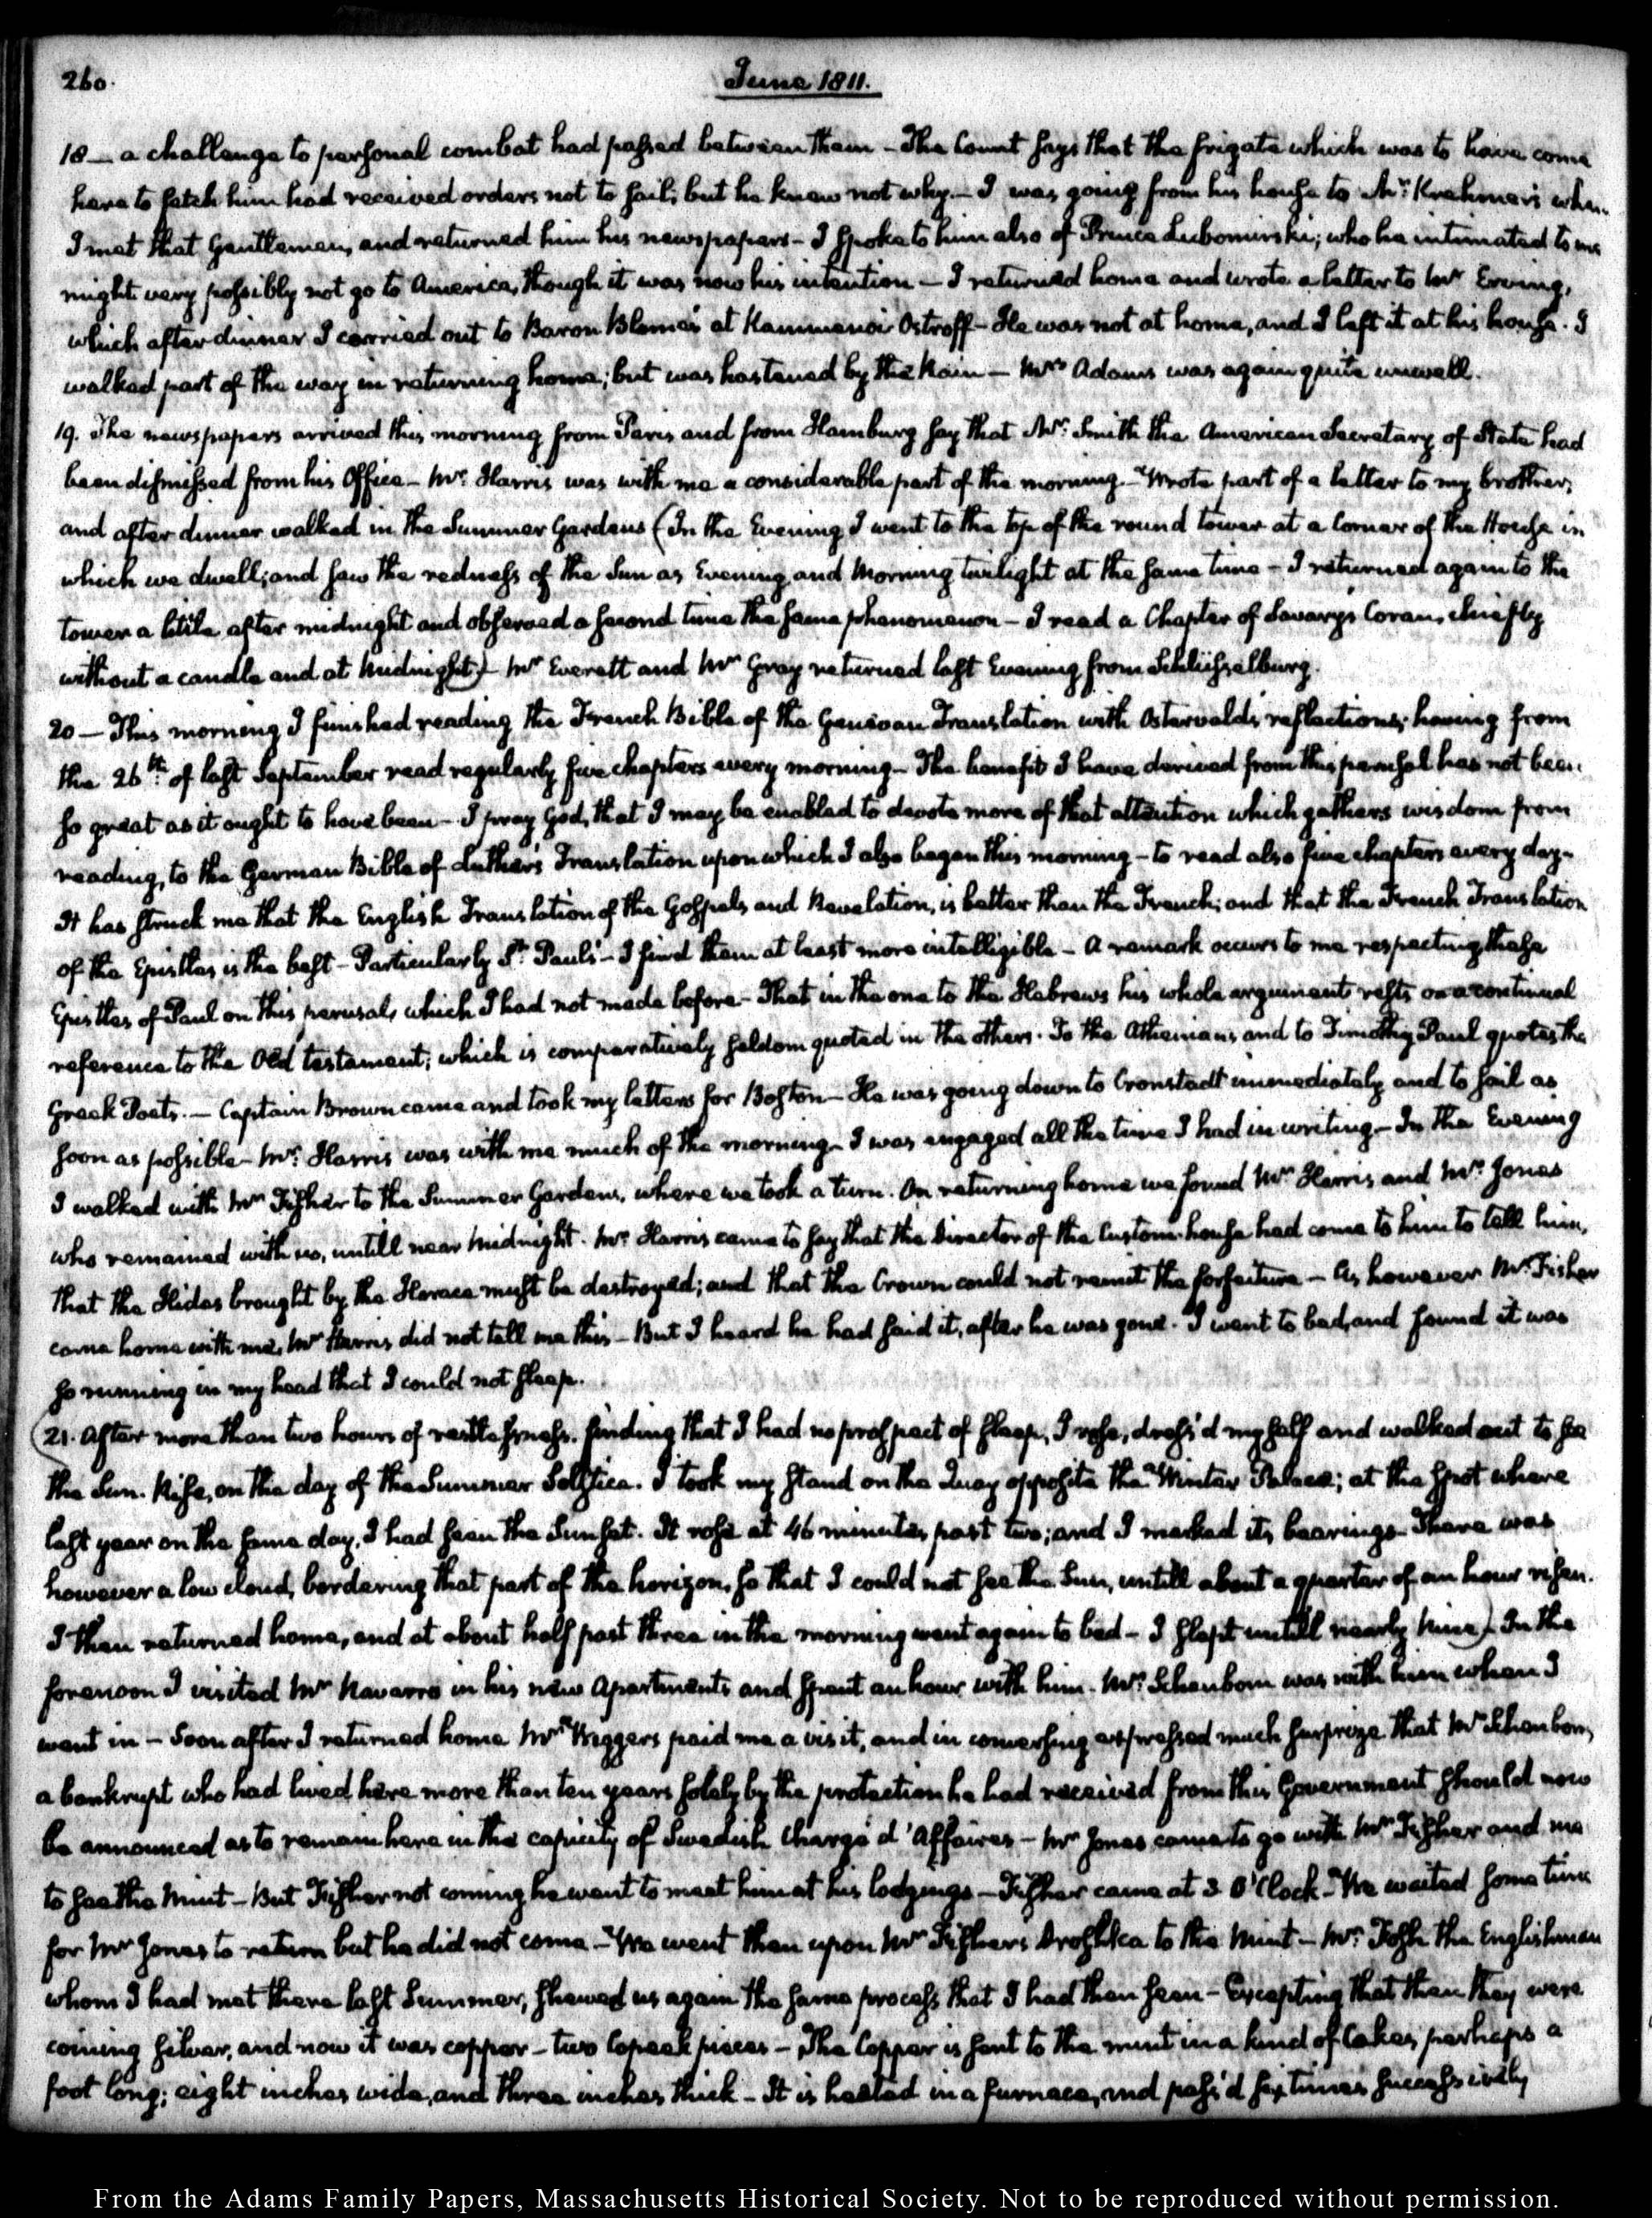 260.
June 1811.
18 — a challenge to personal combat had passed between them — The Count says that the frigate which was to have come
here to fetch him had received orders not to sail; but he knew not why — I was going from his house to Mr. Krehmer's when
I met that Gentleman, and returned him his newspapers — I spoke to him also of Prince Lubomirski; who he intimated to me
might very possibly not go to America, though it was now his intention — I returned home and wrote a letter to Mr Erving,
which after dinner I carried out to Baron Blome's at Kammenoi Ostroff — He was not at home, and I left it at his house. I
walked part of the way in returning home; but was hastened by the Rain — Mrs Adams was again quite unwell.
19. The newspapers arrived this morning from Paris and from Hamburg say that Mr. Smith the American Secretary of State had
been dismissed from his Office — Mr. Harris was with me a considerable part of the morning — Wrote part of a letter to my brother;
and after dinner walked in the Summer Gardens (In the Evening I went to the top of the round tower at a Corner of the House in
which we dwell; and saw the redness of the Sun as Evening and Morning twilight at the same time — I returned again to the
tower a little after midnight and observed a second time the same phenomenon — I read a Chapter of Savary's Coran, chiefly
without a candle and at Midnight) — Mr Everett and Mr Gray returned last Evening from Schlüsselburg.
20 — This morning I finished reading the French Bible of the Genevan Translation with Ostervald's reflections; having from
the 26th of last September read regularly five chapters every morning — The benefit I have derived from this perusal has not been
so great as it ought to have been — I pray God, that I may be enabled to devote more of that attention which gathers wisdom from
reading, to the German Bible of Luther's Translation upon which I also began this morning — to read also five chapters every day —
It has struck me that the English Translation of the Gospels and Revelation, is better than the French; and that the French Translation
of the Epistles, is the best — Particularly St. Paul's — I find them at least more intelligible — A remark occurs to me respecting these
Epistles of Paul on this perusal, which I had not made before — That in the one to the Hebrews his whole argument rests on a continual
reference to the Old testament; which is comparatively seldom quoted in the others. To the Athenians, and to Timothy Paul quotes the
Greek Poets. — Captain Brown came and took my letters for Boston — He was going down to Cronstadt immediately and to sail as
soon as possible — Mr. Harris was with me much of the morning — I was engaged all the time I had in writing — In the Evening
I walked with Mr Fisher to the Summer Gardens, where we took a turn. On returning home we found Mr Harris and Mr. Jones
who remained with us, untill near midnight. Mr. Harris came to say that the Director of the Custom-house had come to him to tell him,
that the Hides brought by the Horace must be destroyed; and that the Crown could not remit the forfeiture — As however Mr. Fisher
came home with me, Mr Harris did not tell me this — But I heard he had said it, after he was gone. I went to bed, and found it was
so running in my head that I could not sleep.
(21. After more than two hours of restlessness, finding that I had no prospect of sleep, I rose, dress'd myself and walked out to see
the Sun. Rise, on the day of the Summer Solstice. I took my stand on the Quay opposite the Winter Palace; at the spot where
last year on the same day, I had seen the Sun set. It rose at 46 minutes past two; and I marked its bearings — There was
however a low cloud, bordering that part of the horizon, so that I could not see the Sun, untill about a quarter of an hour risen.
I then returned home, and at about half past three in the morning went again to bed — I slept untill nearly Nine) — In the
forenoon I visited Mr Navarro in his new Apartments and spent an hour with him. Mr. Schenbom was with him when I
went in — Soon after I returned home Mr Wiggers paid me a visit, and in conversing expressed much surprize that Mr Schenbom,
a bankrupt who had lived here more than ten years solely by the protection he had received from this Government should now
be announced as to remain here in the capicity of Swedish Chargé d'Affaires — Mr Jones came to go with Mr Fisher and me
to see the Mint — But Fisher not coming he went to meet him at his lodgings — Fisher came at 3 O'Clock — We waited some time
for Mr Jones to return but he did not come — We went then upon Mr Fisher's Droshka to the Mint — Mr. the Englishman
whom I had met there last Summer, shewed us again the same process that I had then seen — Excepting that then they were
coining silver, and now it was copper — two Copeek pieces — The Copper is sent to the mint in a kind of Cakes, perhaps a
foot long; eight inches wide, and three inches thick — It is heated in a furnace, and pass'd six times successively
From the Adams Family Papers, Massachusetts Historical Society. Not to be reproduced without permission.